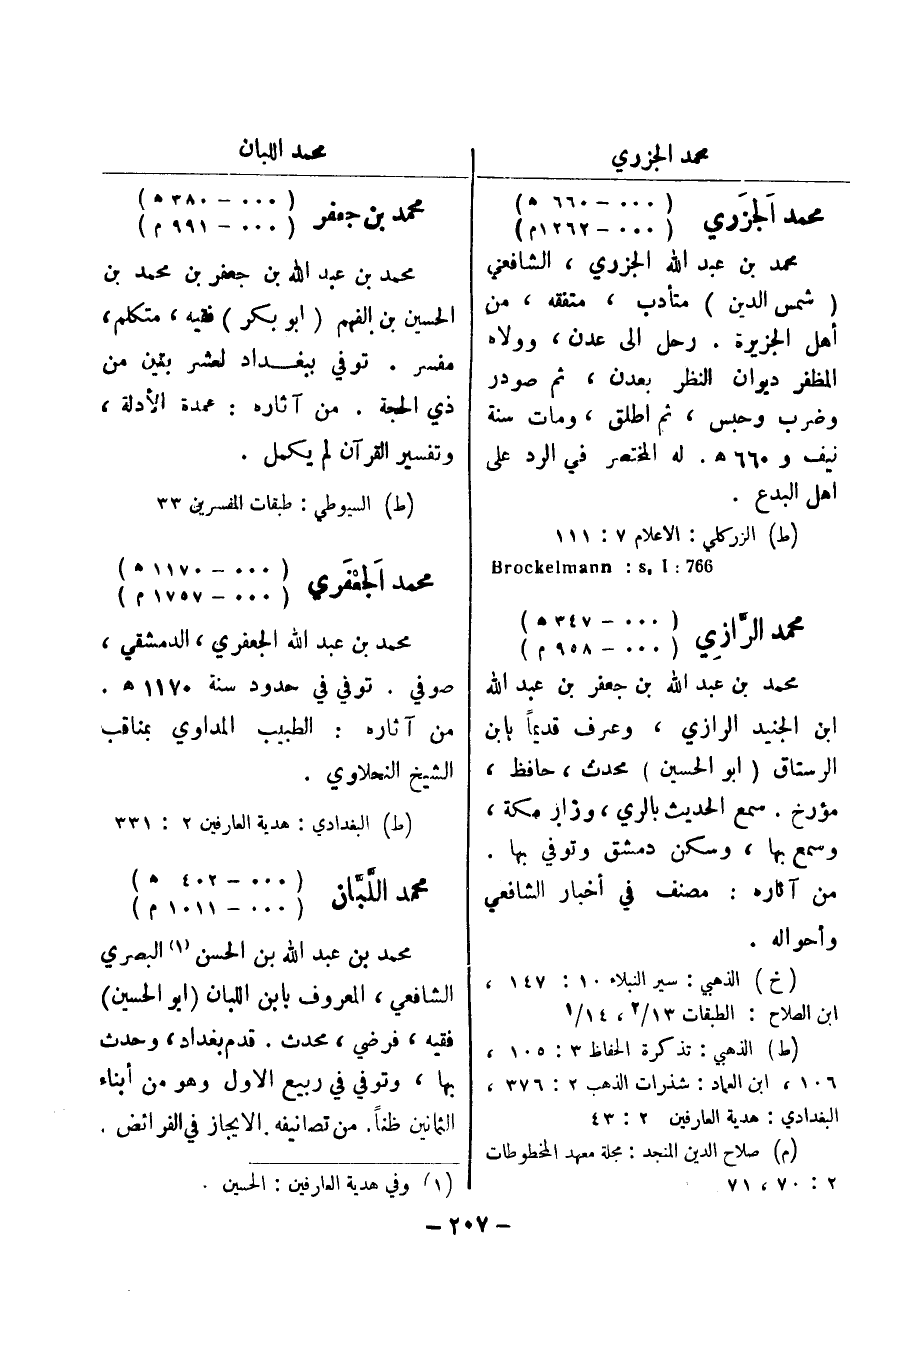 محمد الجزري
محمد الجَزَري
( ٠٠٠ – ٦٦٠ ه )
( ٠٠٠ – ١٢٦٢م )
محمد بن عبد الله الجزري ، الشافعي
( شمس الدين ) متأدب ، متفقه ، من
أهل الجزيرة . رحل الى عدن ، وولاه
المظفر ديوان النظر بعدن ، ثم صودر
وضرب وحبس ، ثم اطلق ، ومات سنة
نيف و ٦٦٠ ه. له المختصر في الرد على
اهل البدع .
(ط) الزركلي : الاعلام ٧ : ١١١
Brockelmann : s, I : 766
محمد الرَّازِي
( ٠٠٠ – ٣٤٧ ه )
( ٠٠٠ – ٩٥٨ م )
محمد بن عبد الله بن جعفر بن عبد الله
ابن الجنيد الرازي ، وعرف قديماً بابن
الرستاق ( ابو الحسين ) محدث ، حافظ ،
مؤرخ . سمع الحديث بالري ، وزار مكة ،
وسمع بها ، وسكن دمشق وتوفي بها .
من آثاره : مصنف في أخبار الشافعي
وأحواله .
(خ) الذهبي : سير النبلاء ١٠ : ١٤٧ ،
ابن الصلاح : الطبقات ٢/١٣ ، ١/١٤
(ط) الذهبي : تذكرة الحفاظ ٣ : ١٠٥ ،
١٠٦ ، ابن العماد : شذرات الذهب ٢ : ٣٧٦ ،
البغدادي : هدية العارفين ٢ : ٤٣
(م) صلاح الدين المنجد : مجلة معهد المخطوطات
٢ : ٧٠ ، ٧١
محمد اللبان
محمد بن جعفر
( ٠٠٠ – ٣٨٠ ه )
( ٠٠٠ – ٩٩١ م )
محمد بن عبد الله بن جعفر بن محمد بن
الحسين بن الفهم ( ابو بكر ) فقيه ، متكلم ،
مفسر . توفي ببغداد لعشر بقين من
ذي الحجة . من آثاره : عمدة الأدلة ،
وتفسير القرآن لم يكمل .
(ط) السيوطي : طبقات المفسرين ٣٣
محمد الجَعْفَري
( ٠٠٠ – ١١٧٠ ه )
( ٠٠٠ – ١٧٥٧ م )
محمد بن عبد الله الجعفري ، الدمشقي ،
صوفي . توفي في حدود سنة ١١٧٠ ه .
من آثاره : الطبيب المداوي بمناقب
الشيخ النحلاوي .
(ط) البغدادي : هدية العارفين ٢ : ٣٣١
محمد اللَّبَّان
( ٠٠٠ – ٤٠٢ ه )
( ٠٠٠ – ١٠١١ م )
محمد بن عبد الله بن الحسن (١) البصري
الشافعي ، المعروف بابن اللبان (ابو الحسين)
فقيه ، فرضي ، محدث . قدم بغداد ، وحدث
بها ، وتوفي في ربيع الاول وهو من أبناء
الثمانين ظناً. من تصانيفه الايجاز في الفرائض .
(١) وفي هدية العارفين : الحسين .
– ٢٠٧ –